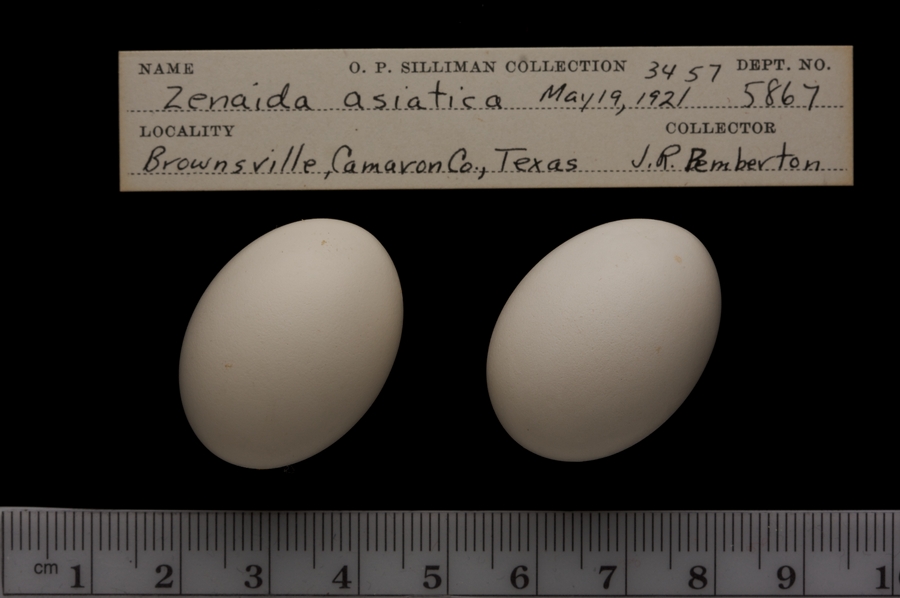 NAME O. P. SILLIMAN COLLECTION 3457 DEPT. NO.
Zenaida asiatica May 19, 1921 5867
LOCALITY COLLECTOR
Brownsville, Camaron Co., Texas J.R. Pemberton
cm 1 2 3 4 5 6 7 8 9 1